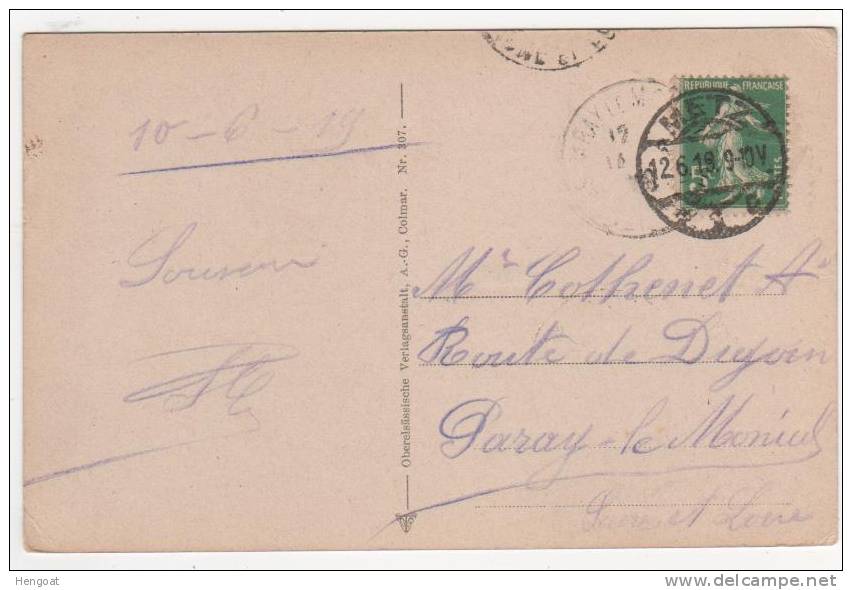 10-6-19
Souvenir
Oberelsässische Verlagsanstalt, A.-G., Colmar. Nr. 307.
REPUBLIQUE FRANÇAISE
PARAY LE M
METZ
12.6.19. 9-10V
Mr Cothenet A
Route de Digoin
Paray-le-Monial
Saône et Loire
Hengoat
delcampe.net